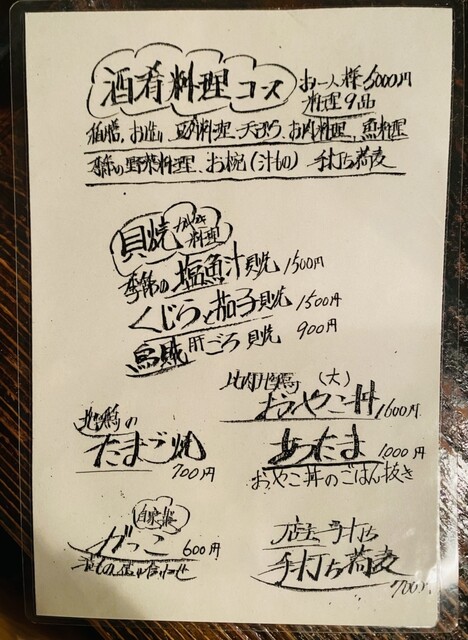 酒肴料理コース
お一人様5000円
料理9品
お造り、天ぷら、お肉料理、魚料理
季節の野菜料理、お椀(汁もの) 手打ち蕎麦
貝焼
料理
季節の塩魚汁貝焼 1500円
くじらと茄子貝焼 1500円
烏賊肝ごろ貝焼 900円
比内地鶏 (大)
おやこ丼 1600円
地鶏の
たまご焼
700円
あったま 1000円
おやこ丼のごはん抜き
自家製
がっこ 600円
店主手打ち
手打ち蕎麦
700円